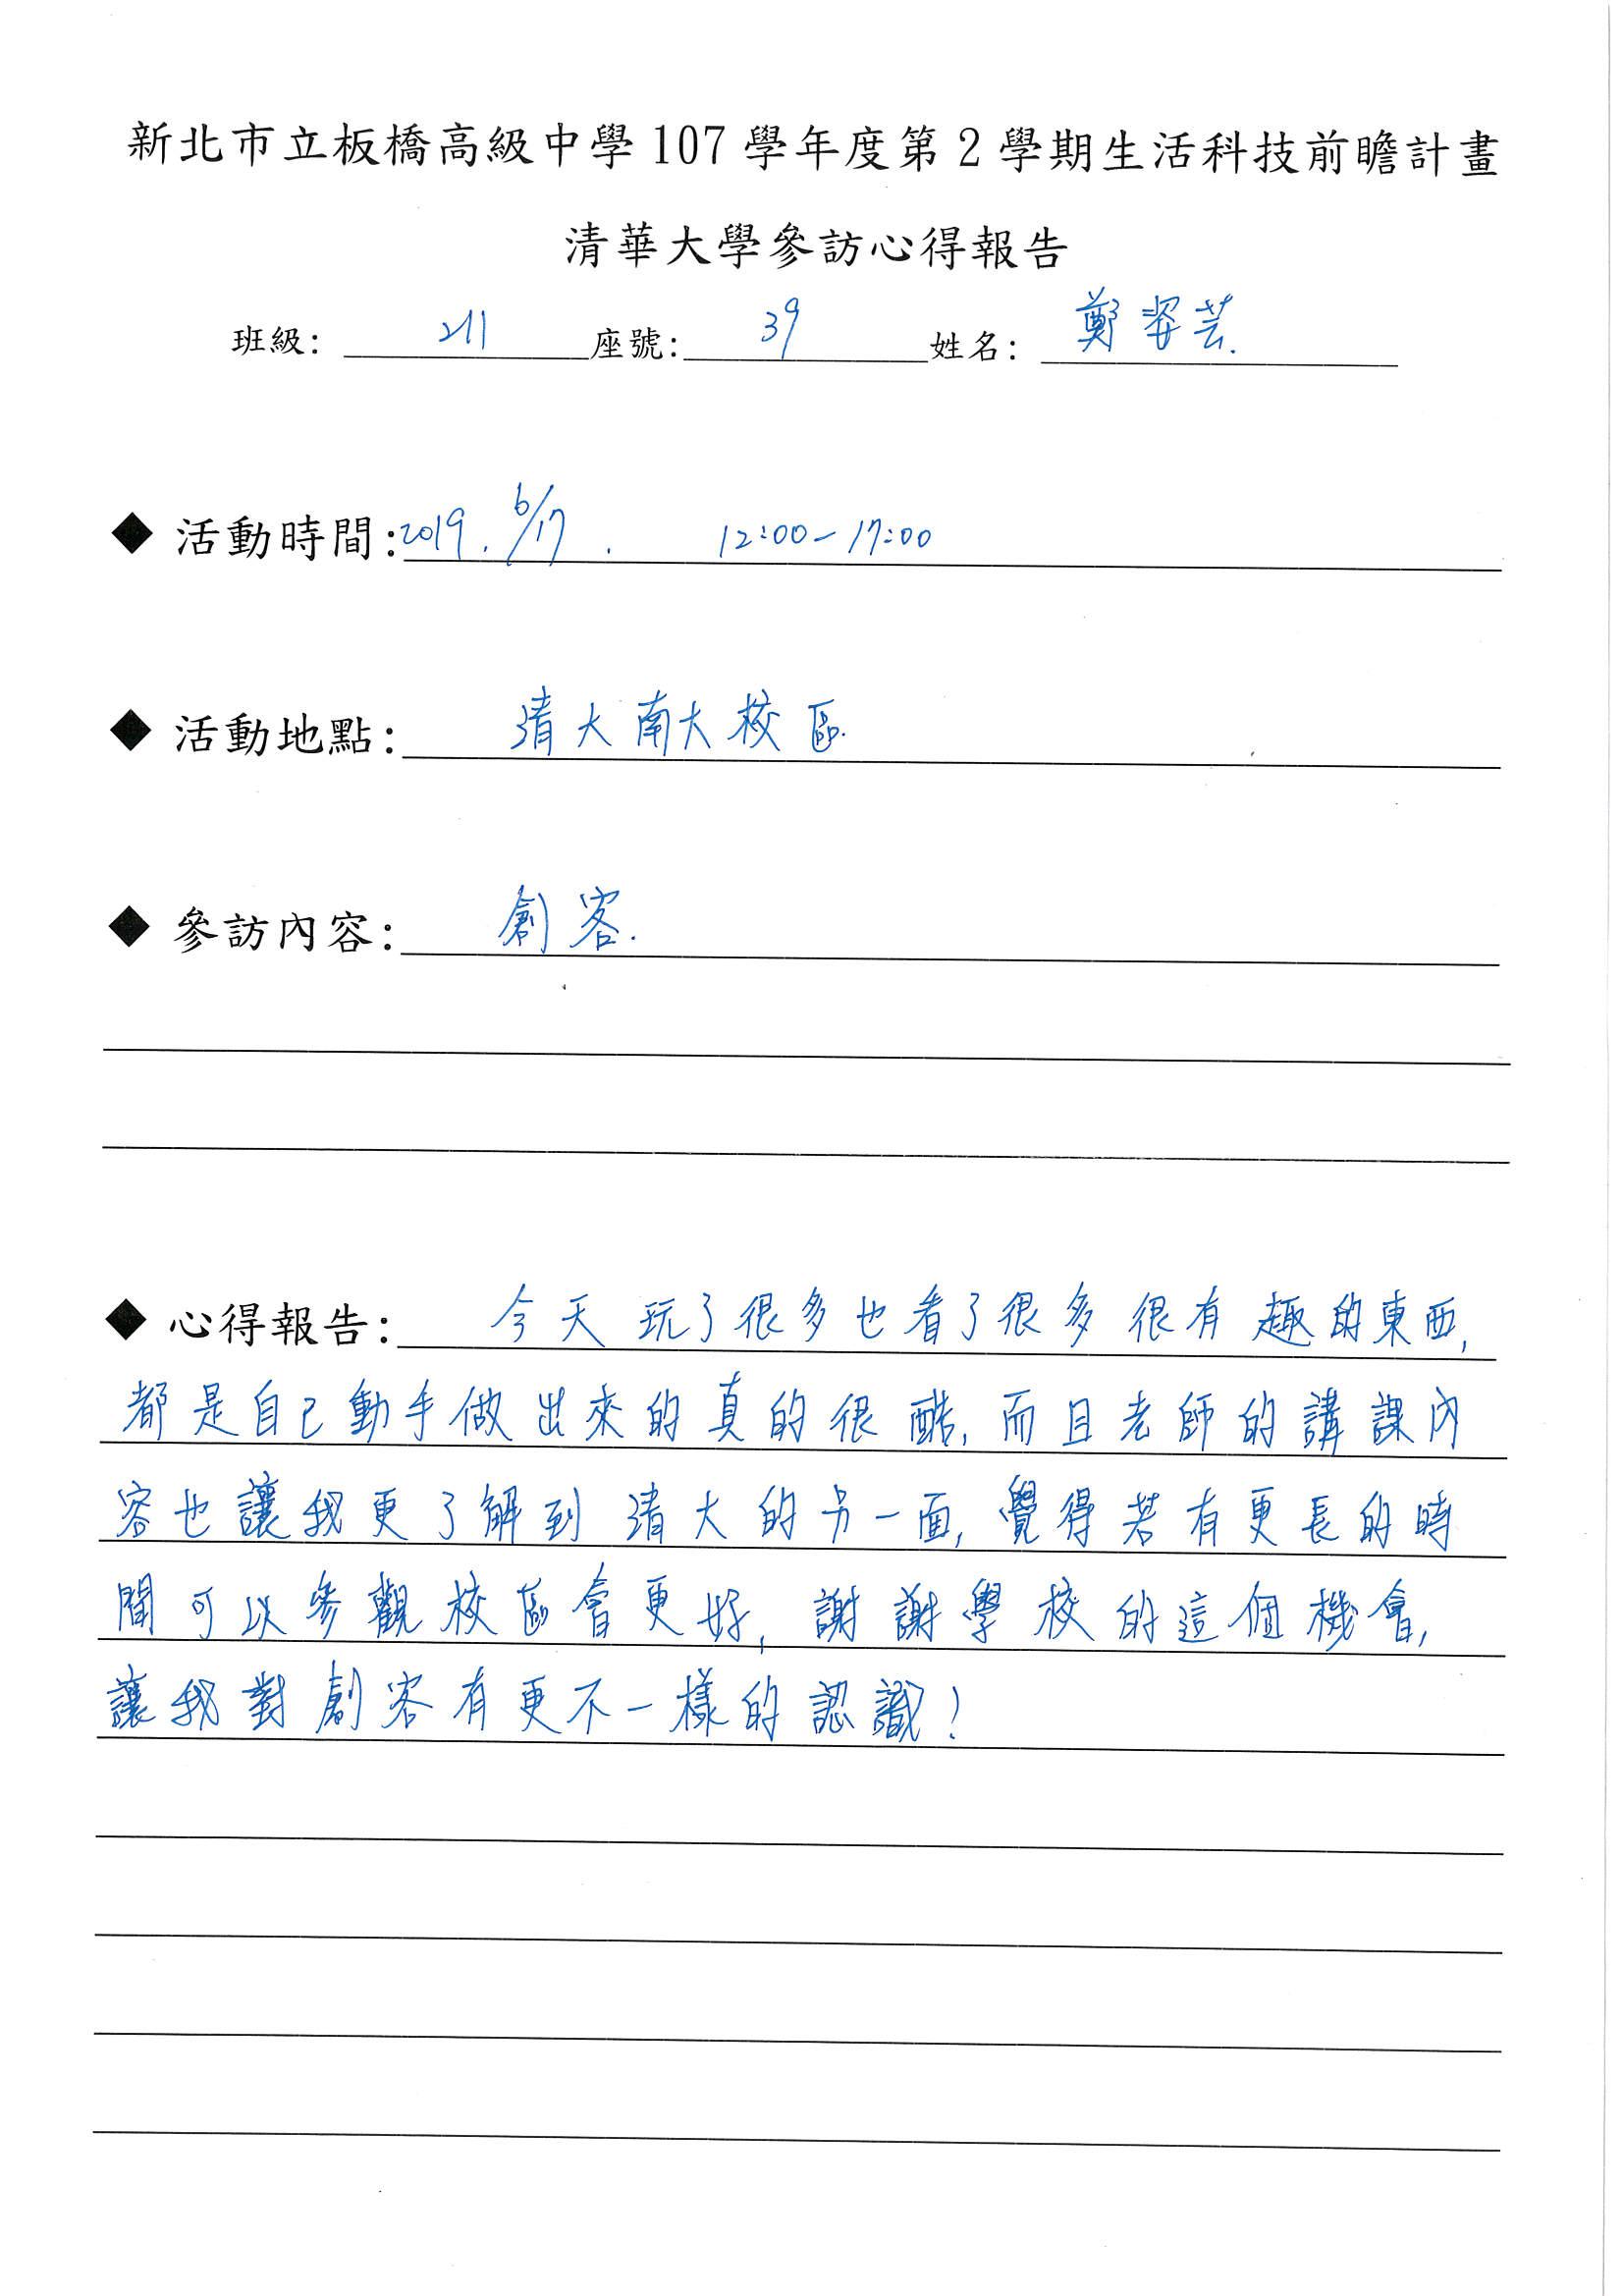 新北市立板橋高級中學 107 學年度第 2 學期生活科技前瞻計畫
清華大學參訪心得報告
班級: 211 座號: 39 姓名: 鄭姿芸.
◆ 活動時間: 2019. 6/17. 12:00-17:00
◆ 活動地點: 清大南大校區.
◆ 參訪內容: 創客.
◆ 心得報告: 今天玩了很多也看了很多很有趣的東西,
都是自己動手做出來的真的很酷,而且老師的講課內
容也讓我更了解到清大的另一面,覺得若有更長的時
間可以參觀校區會更好,謝謝學校的這個機會,
讓我對創客有更不一樣的認識!